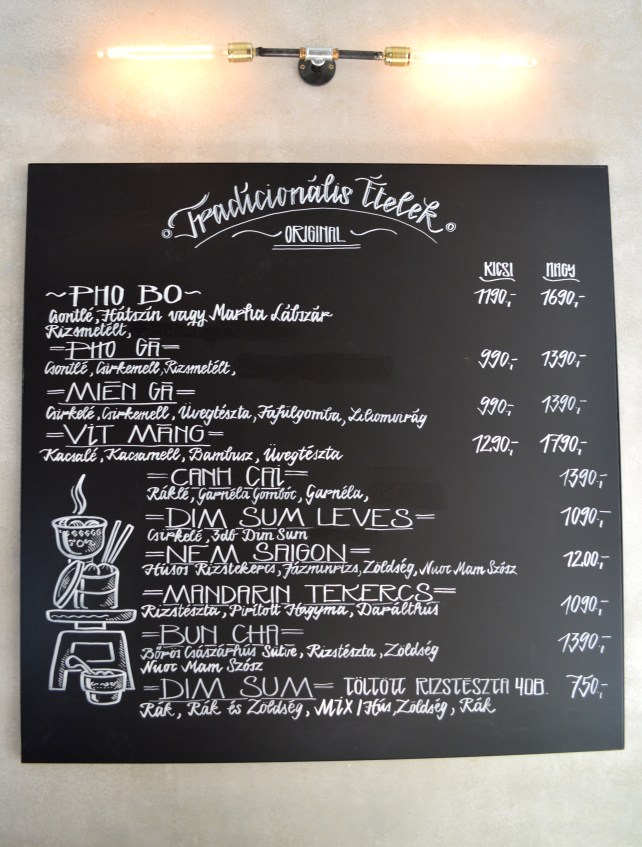 Tradicionális Ételek
ORIGINAL
KICSI NAGY
~PHO BO~ 1190,- 1690,-
Csontlé, Hátszín vagy Marha Lábszár
Rizsmetélt,
=PHO GÀ= 990,- 1390,-
Csontlé, Csirkemell, Rizsmetélt,
=MIÉN GÀ= 990,- 1390,-
Csirkelé, Csirkemell, Üvegtészta, Fafülgomba, Liliomvirág
=VIT MĂNG= 1290,- 1790,-
Kacsalé, Kacsamell, Bambusz, Üvegtészta
=CANH CAI= 1390,-
Ráklé, Garnéla Gombóc, Garnéla,
=DIM SUM LEVES= 1090,-
Csirkelé, 3db Dim Sum
=NEM SAIGON= 1200,-
Húsos Rizstekercs, Jázminrizs, Zöldség, Nuoc Mam Szósz
=MANDARIN TEKERCS= 1090,-
Rizstészta, Pirított Hagyma, Darálthús
=BUN CHA= 1390,-
Bőrös Császárhús Sütve, Rizstészta, Zöldség
Nuoc Mam Szósz
=DIM SUM= TÖLTÖTT RIZSTÉSZTA 4DB. 750,-
Rák, Rák és Zöldség, MIX/Hús, Zöldség, Rák